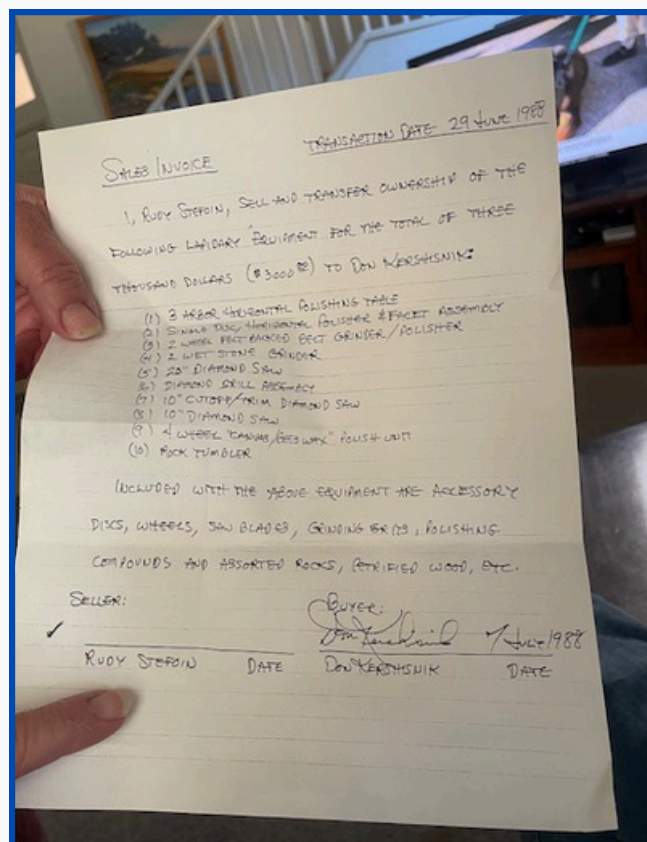 TRANSACTION DATE 29 JUNE 1988
SALES INVOICE
I, RUDY STEFOIN, SELL AND TRANSFER OWNERSHIP OF THE
FOLLOWING LAPIDARY EQUIPMENT FOR THE TOTAL OF THREE
THOUSAND DOLLARS ($3000 00) TO DON KERSHSNIK:
(1) 3 ARBOR HORIZONTAL POLISHING TABLE
(2) SINGLE DISC, HORIZONTAL POLISHER & FACET ASSEMBLY
(3) 2 WHEEL FELT BACKED BELT GRINDER/POLISHER
(4) 2 WET STONE GRINDER
(5) 20" DIAMOND SAW
(6) DIAMOND DRILL ASSEMBLY
(7) 10" CUTOFF/TRIM DIAMOND SAW
(8) 10" DIAMOND SAW
(9) 4 WHEEL "CANVAS/GEO WAX" POLISH UNIT
(10) ROCK TUMBLER
INCLUDED WITH THE ABOVE EQUIPMENT ARE ACCESSORY
DISCS, WHEELS, SAW BLADES, GRINDING GRITS, POLISHING
COMPOUNDS AND ASSORTED ROCKS, PETRIFIED WOOD, ETC.
SELLER: BUYER:
Don Kershisnik 7 JULY 1988
RUDY STEFOIN DATE DON KERSHSNIK DATE